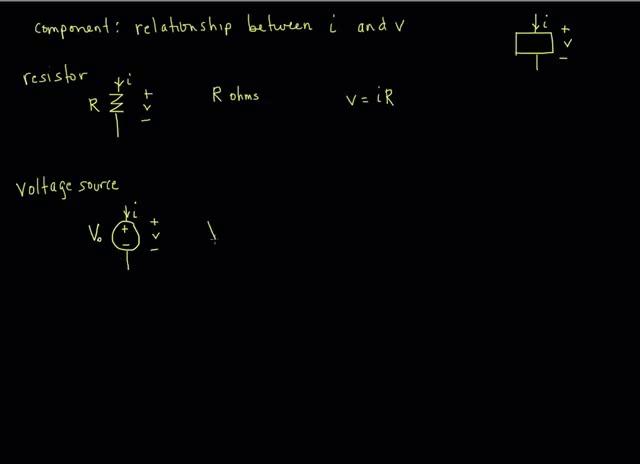 component: relationship between i and v
i
+
v
−
resistor
i
R
+
v
−
R ohms
v = iR
Voltage source
i
V₀
+
−
+
v
−
\